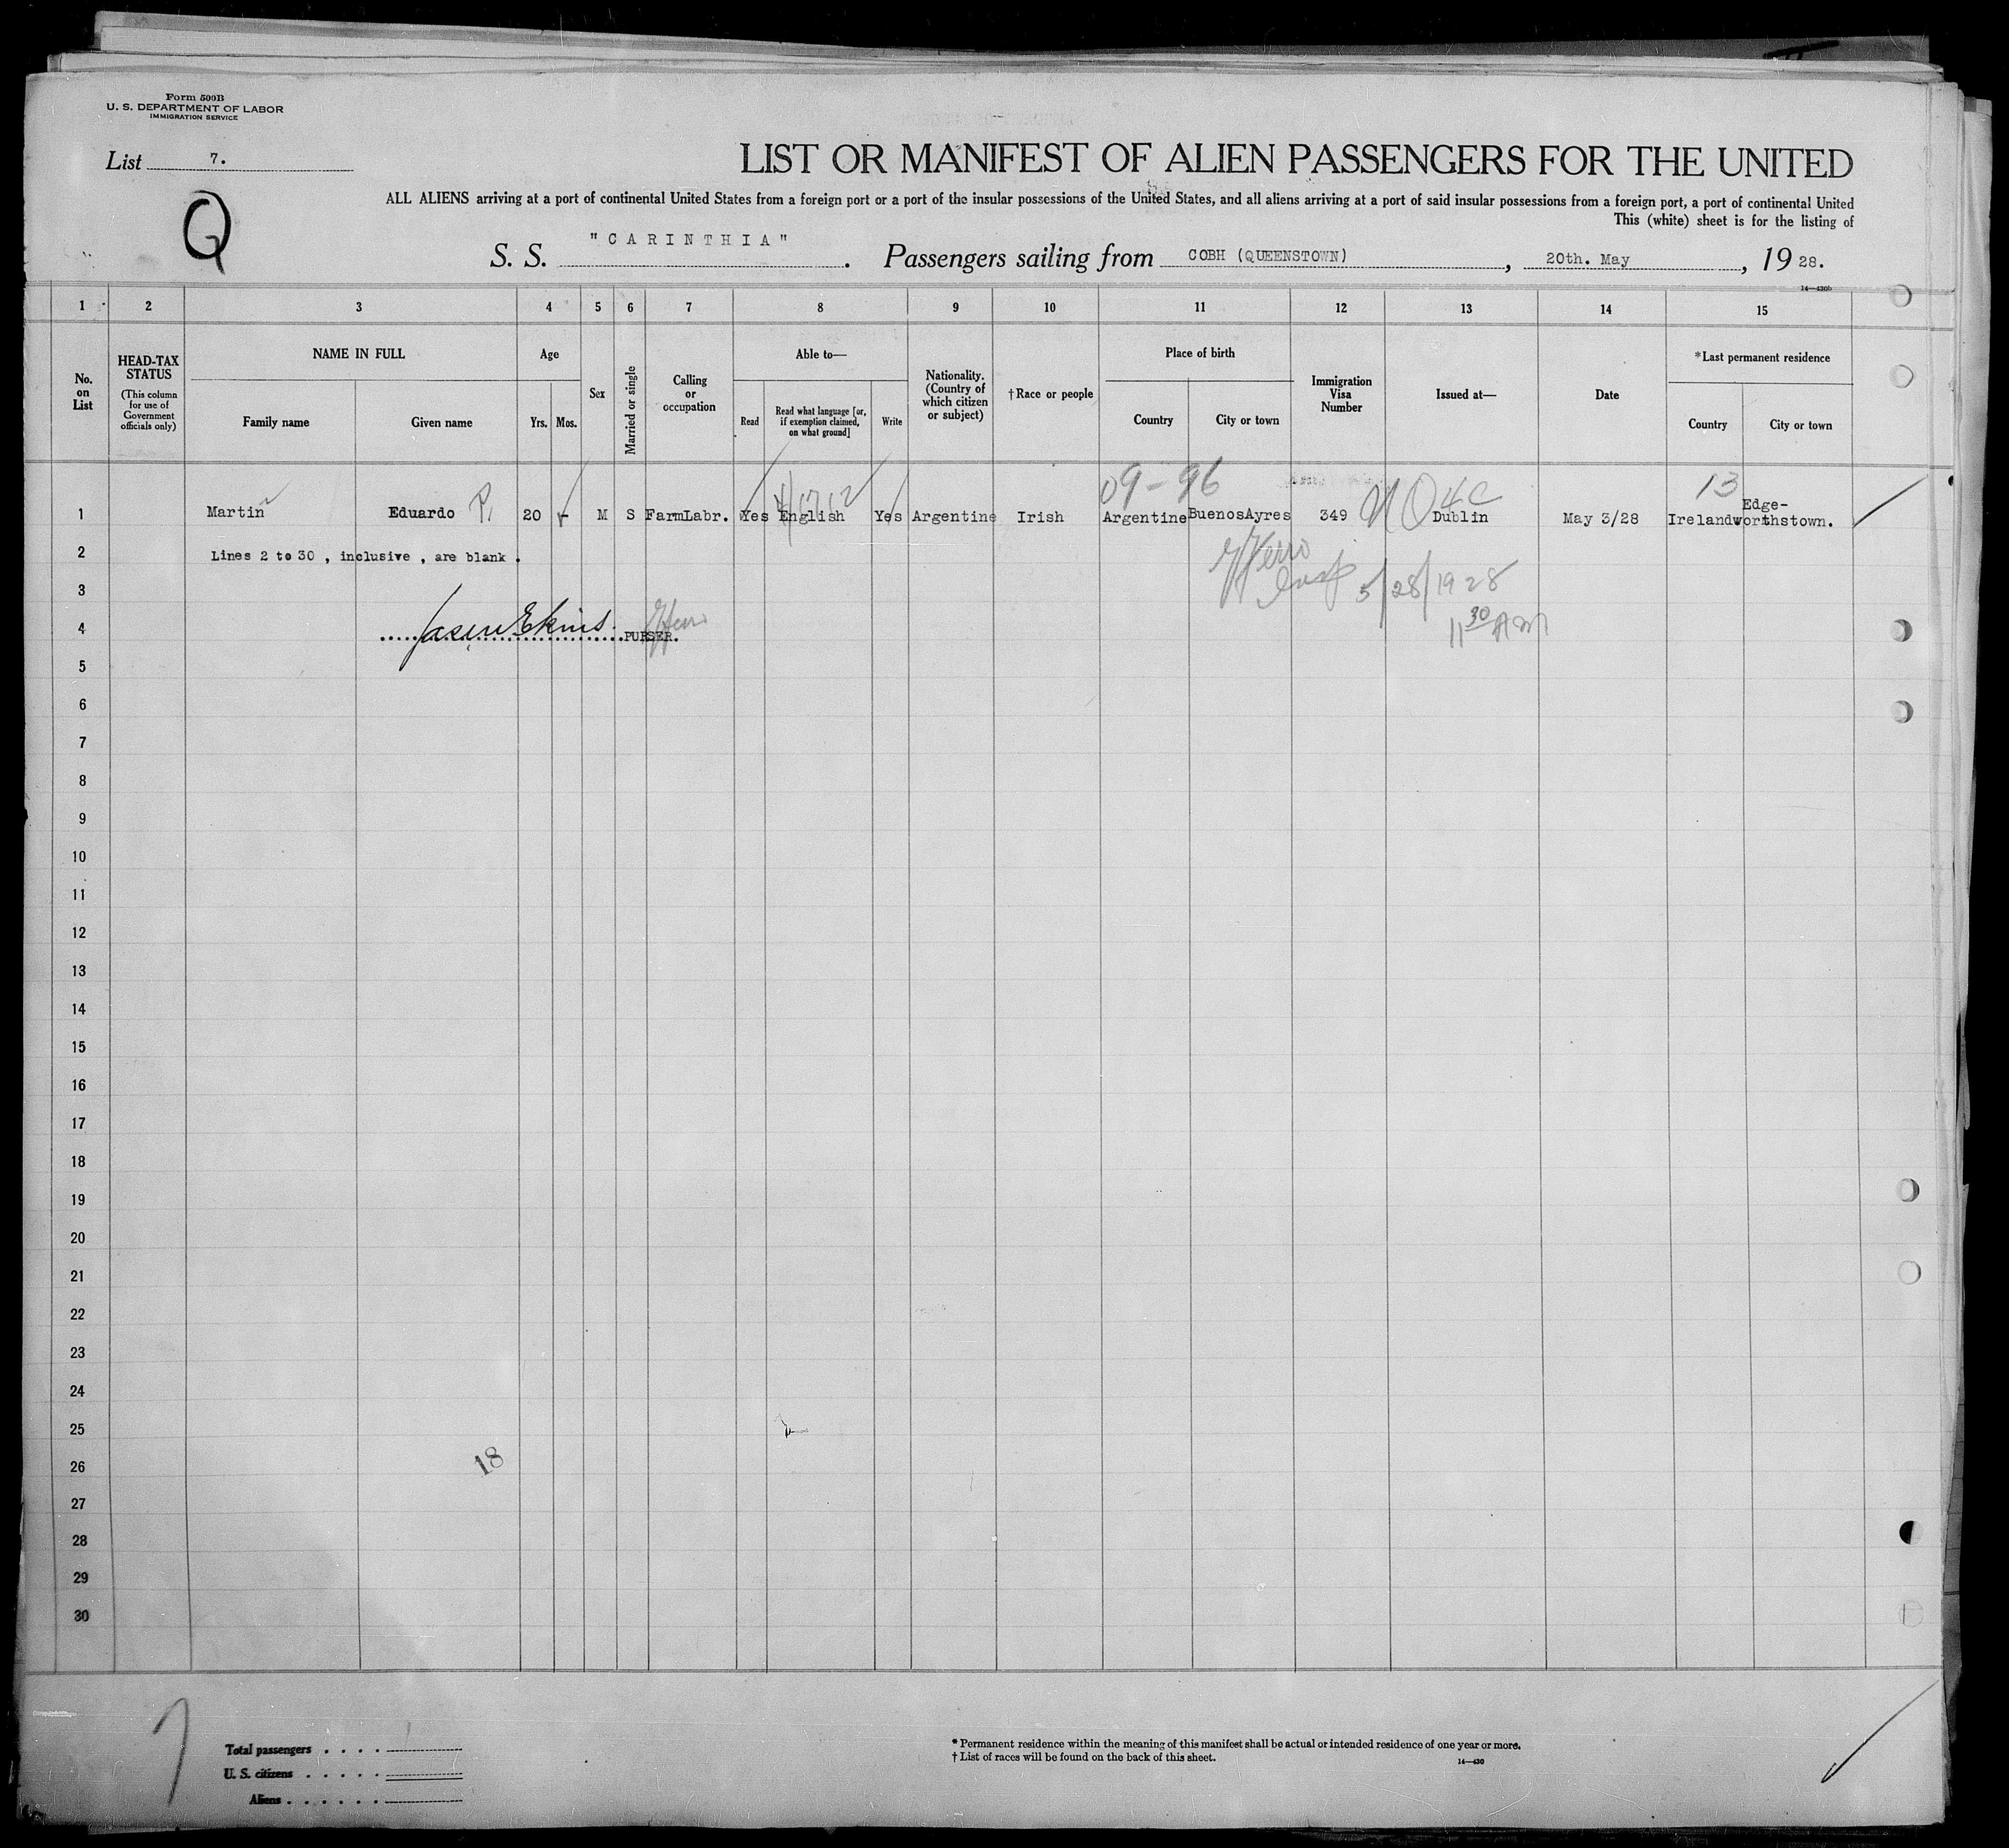 Form 500B
U. S. DEPARTMENT OF LABOR
IMMIGRATION SERVICE
List 7.
LIST OR MANIFEST OF ALIEN PASSENGERS FOR THE UNITED
Q
ALL ALIENS arriving at a port of continental United States from a foreign port or a port of the insular possessions of the United States, and all aliens arriving at a port of said insular possessions from a foreign port, a port of continental United
This (white) sheet is for the listing of
S. S. "CARINTHIA" . Passengers sailing from COBH (QUEENSTOWN) , 20th. May , 19 28.
14—430b
1 2 3 4 5 6 7 8 9 10 11 12 13 14 15
No. on List
HEAD-TAX STATUS
(This column for use of Government officials only)
NAME IN FULL
Family name Given name
Age
Yrs. Mos.
Sex
Married or single
Calling or occupation
Able to—
Read
Read what language [or, if exemption claimed, on what ground]
Write
Nationality. (Country of which citizen or subject)
†Race or people
Place of birth
Country City or town
Immigration Visa Number
Issued at—
Date
*Last permanent residence
Country City or town
09-96 13
1 Martin Eduardo P. 20 - M S FarmLabr. Yes English Yes Argentine Irish Argentine BuenosAyres 349 Dublin May 3/28 Ireland Edge-worthstown.
2 Lines 2 to 30 , inclusive , are blank .
3 5/28/1928
4 PURSER. 11 30 AM
5
6
7
8
9
10
11
12
13
14
15
16
17
18
19
20
21
22
23
24
25
26 18
27
28
29
30
7
Total passengers . . . .
U. S. citizens . . . . .
Aliens . . . . . .
* Permanent residence within the meaning of this manifest shall be actual or intended residence of one year or more.
† List of races will be found on the back of this sheet.
14—430